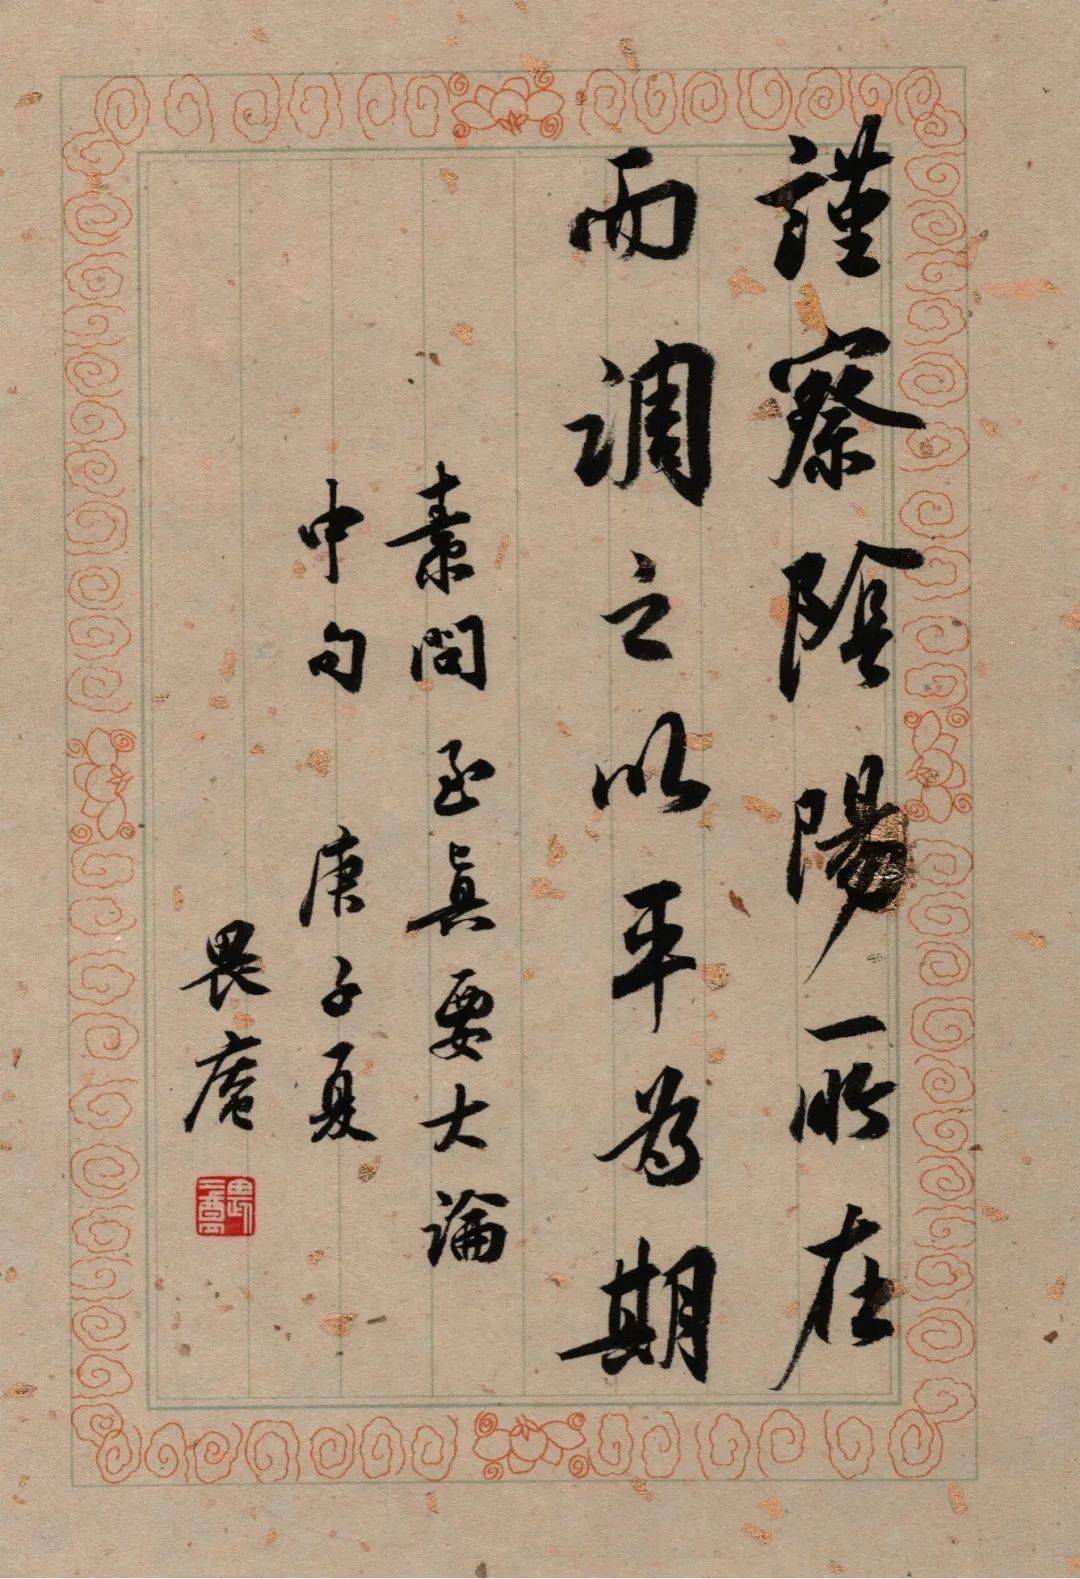 謹察陰陽所在
而調之以平為期
素問至真要大論
中句 庚子夏
畏庵